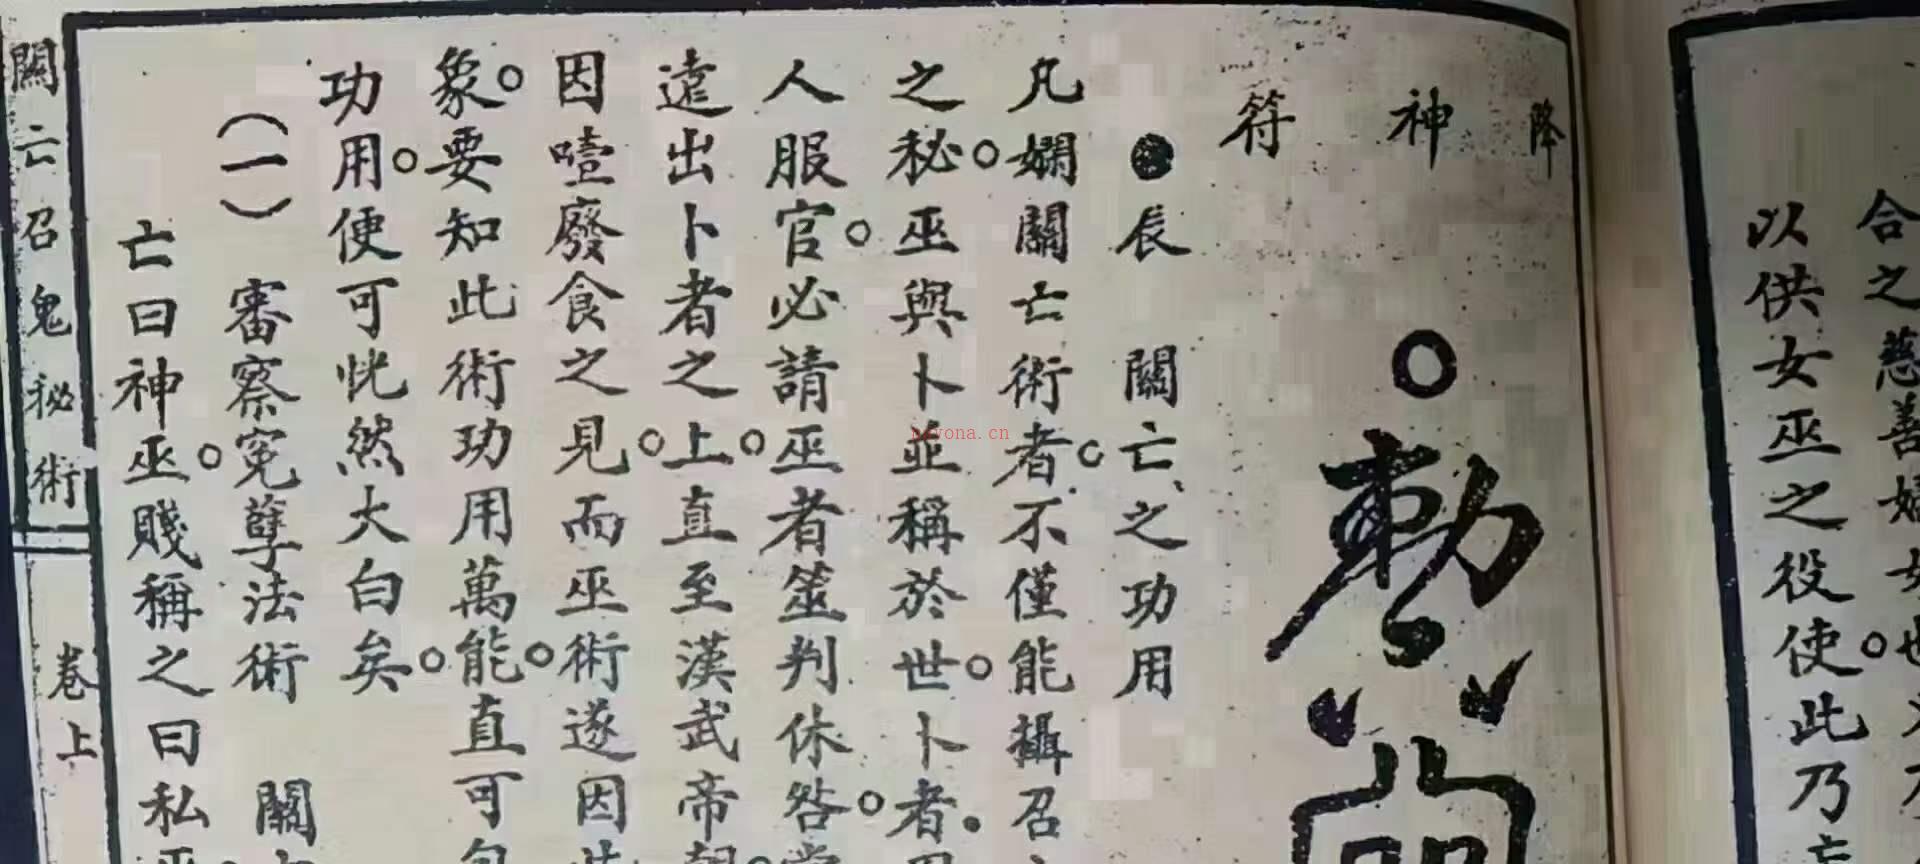 合之慈善婦女也
以供女巫之役使。此乃
降神符
勅
●辰　關亡之功用
凡嫻關亡術者。不僅能攝召
之秘。巫與卜並稱於世。卜者
人服官。必請巫者筮判休咎。
遠出卜者之上。直至漢武帝朝
因噎廢食之見。而巫術遂因
象。要知此術功用萬能。直可
功用。便可恍然大白矣。
（一）　審察冤孽法術　關
亡曰神巫。賤稱之曰私巫
關亡召鬼秘術　卷上